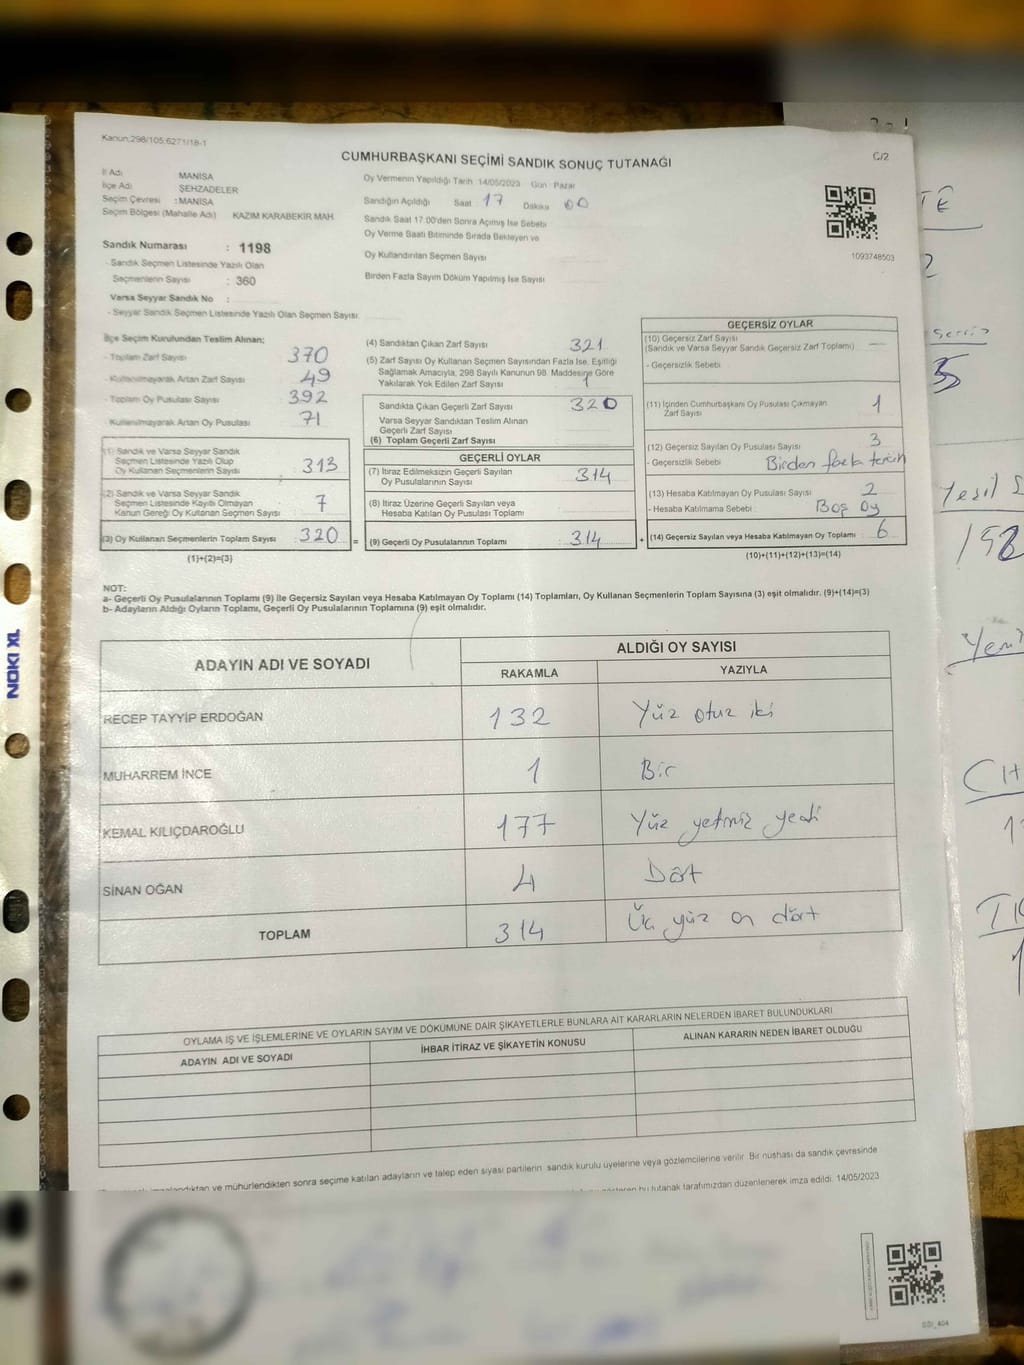 Kanun:298/105;6271/18-1
CUMHURBAŞKANI SEÇİMİ SANDIK SONUÇ TUTANAĞI
C/2
İl Adı MANİSA
İlçe Adı ŞEHZADELER
Seçim Çevresi : MANİSA
Seçim Bölgesi (Mahalle Adı) KAZIM KARABEKİR MAH.
Sandık Numarası : 1198
- Sandık Seçmen Listesinde Yazılı Olan
Seçmenlerin Sayısı : 360
Varsa Seyyar Sandık No :
- Seyyar Sandık Seçmen Listesinde Yazılı Olan Seçmen Sayısı:
Oy Vermenin Yapıldığı Tarih 14/05/2023 Gün Pazar
Sandığın Açıldığı Saat 17 Dakika 00
Sandık Saat 17.00'den Sonra Açımış İse Sebebi
Oy Verme Saati Bitiminde Sırada Bekleyen ve
Oy Kullandırılan Seçmen Sayısı
Birden Fazla Sayım Döküm Yapılmış İse Sayısı
1093748503
İlçe Seçim Kurulundan Teslim Alınan;
- Toplam Zarf Sayısı 370
- Kullanılmayarak Artan Zarf Sayısı 49
- Toplam Oy Pusulası Sayısı 392
- Kullanılmayarak Artan Oy Pusulası 71
(1) Sandık ve Varsa Seyyar Sandık
Seçmen Listesinde Yazılı Olup
Oy Kullanan Seçmenlerin Sayısı : 313
(2) Sandık ve Varsa Seyyar Sandık
Seçmen Listesinde Kayıtlı Olmayan
Kanun Gereği Oy Kullanan Seçmen Sayısı : 7
(3) Oy Kullanan Seçmenlerin Toplam Sayısı : 320 =
(1)+(2)=(3)
(4) Sandıktan Çıkan Zarf Sayısı 321
(5) Zarf Sayısı Oy Kullanan Seçmen Sayısından Fazla İse, Eşitliği
Sağlamak Amacıyla, 298 Sayılı Kanunun 98. Maddesine Göre
Yakılarak Yok Edilen Zarf Sayısı 1
Sandıkta Çıkan Geçerli Zarf Sayısı 320
Varsa Seyyar Sandıktan Teslim Alınan
Geçerli Zarf Sayısı
(6) Toplam Geçerli Zarf Sayısı
GEÇERLİ OYLAR
(7) İtiraz Edilmeksizin Geçerli Sayılan
Oy Pusulalarının Sayısı : 314
(8) İtiraz Üzerine Geçerli Sayılan veya
Hesaba Katılan Oy Pusulası Toplamı
(9) Geçerli Oy Pusulalarının Toplamı : 314 +
GEÇERSİZ OYLAR
(10) Geçersiz Zarf Sayısı
(Sandık ve Varsa Seyyar Sandık Geçersiz Zarf Toplamı) —
- Geçersizlik Sebebi
(11) İçinden Cumhurbaşkanı Oy Pusulası Çıkmayan
Zarf Sayısı 1
(12) Geçersiz Sayılan Oy Pusulası Sayısı 3
- Geçersizlik Sebebi Birden fazla tercih
(13) Hesaba Katılmayan Oy Pusulası Sayısı 2
- Hesaba Katılmama Sebebi Boş Oy
(14) Geçersiz Sayılan veya Hesaba Katılmayan Oy Toplamı 6
(10)+(11)+(12)+(13)=(14)
NOT:
a- Geçerli Oy Pusulasının Toplamı (9) ile Geçersiz Sayılan veya Hesaba Katılmayan Oy Toplamı (14) Toplamları, Oy Kullanan Seçmenlerin Toplam Sayısına (3) eşit olmalıdır. (9)+(14)=(3)
b- Adayların Aldığı Oyların Toplamı, Geçerli Oy Pusulalarının Toplamına (9) eşit olmalıdır.
ADAYIN ADI VE SOYADI ALDIĞI OY SAYISI
RAKAMLA YAZIYLA
RECEP TAYYİP ERDOĞAN 132 Yüz otuz iki
MUHARREM İNCE 1 Bir
KEMAL KILIÇDAROĞLU 177 Yüz yetmiş yedi
SİNAN OĞAN 4 Dört
TOPLAM 314 Üç yüz on dört
OYLAMA İŞ VE İŞLEMLERİNE VE OYLARIN SAYIM VE DÖKÜMÜNE DAİR ŞİKAYETLERLE BUNLARA AİT KARARLARIN NELERDEN İBARET BULUNDUKLARI
ADAYIN ADI VE SOYADI İHBAR İTİRAZ VE ŞİKAYETİN KONUSU ALINAN KARARIN NEDEN İBARET OLDUĞU
mühürlendikten sonra seçime katılan adayların ve talep eden siyasi partilerin sandık kurulu üyelerine veya gözlemcilerine verilir. Bir nüshası da sandık çevresinde
bu tutanak tarafımızdan düzenlenerek imza edildi. 14/05/2023
NOKI XL
Yeşil S
CH